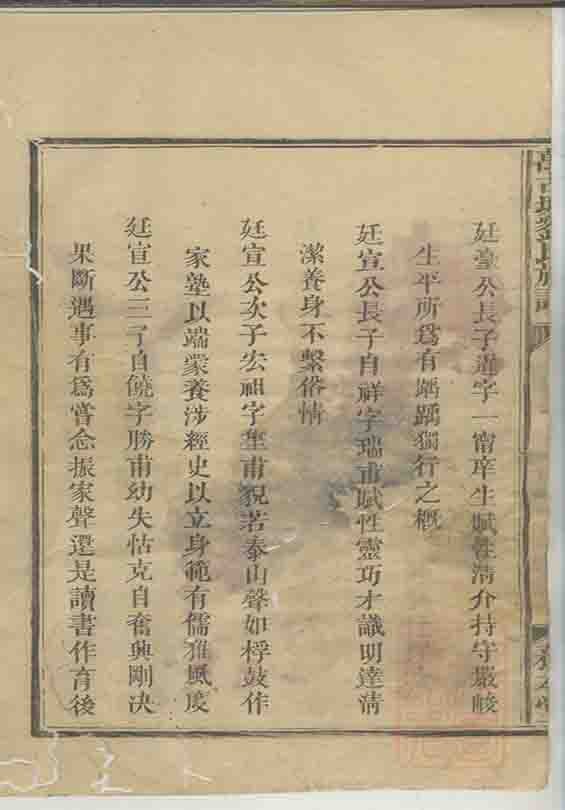 廷臺公長子逵字一甯庠生賦性清介持守嚴峻
生平所爲有踽踽獨行之槪
廷宣公長子自祥字瑞甫賦性靈巧才識明達淸
潔養身不繫俗情
廷宣公次子宏祖字集甫貌若泰山聲如桴鼓作
家塾以端蒙養涉經史以立身範有儒雅風度
廷宣公三子自饒字勝甫幼失怙克自奮興剛決
果斷遇事有爲嘗念振家聲還是讀書作育後